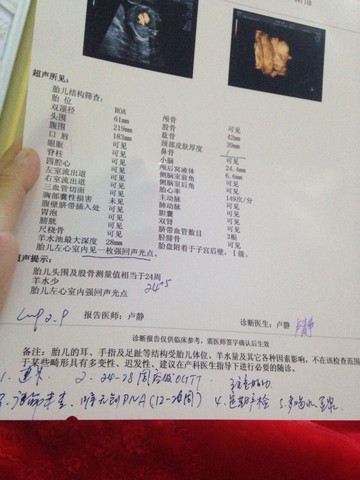 超声所见:
胎儿结构筛查:
胎 位 ROA 颅骨 可见
双顶径 61mm 股骨 42mm
头围 219mm 肱骨 39mm
腹围 183mm 颈部皮肤厚度 /
口 唇 可见 鼻骨 可见
眼眶 可见 小脑 24.4mm
脊柱 可见 颅后窝液体 6.6mm
四腔心 可见 侧脑室前角 可见
左室流出道 可见 侧脑室后角 可见
右室流出道 可见 胎心率 149次/分
三血管切面 可见 主动脉 可见
胸部囊性损害 未见 肺动脉 可见
腹壁脐带插入处 可见 胆囊 可见
胃泡 可见 双肾 可见
膀胱 可见 脐带血管数目 3根
尺桡骨 可见 胫腓骨 可见
羊水池最大深度 28mm 胎盘附着于子宫后壁,Ⅰ级.
胎儿左心室内见一枚强回声光点
超声提示:
胎儿头围及股骨测量值相当于24周
羊水少
24+5
胎儿左心室内强回声光点
报告医师: 卢静 诊断医生: 卢静
诊断报告仅供临床参考, 需医师签字确认后生效
备注: 胎儿的耳、手指及足趾等结构受胎儿体位、羊水量及其它各种因素影响, 不在该检查范围
于某些畸形具有多变性、迟发性、建议在产科医生指导下进行必要的随诊。
2、24-28周 OGTT
DNA (12-26周) 4、定期产检 5、多喝水